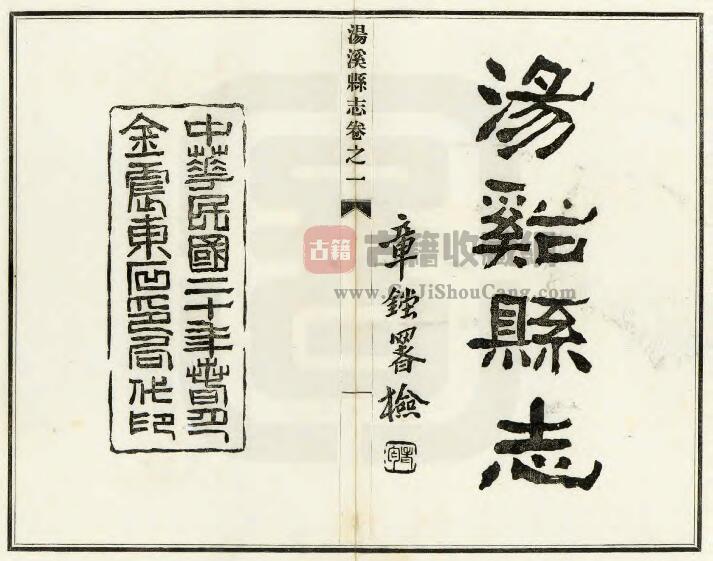 湯谿縣志
章 署檢
湯溪縣志卷之一
一
中華民國二十年春月
金震東石印局代印
古籍
古籍收藏
www.GuJiShouCang.com